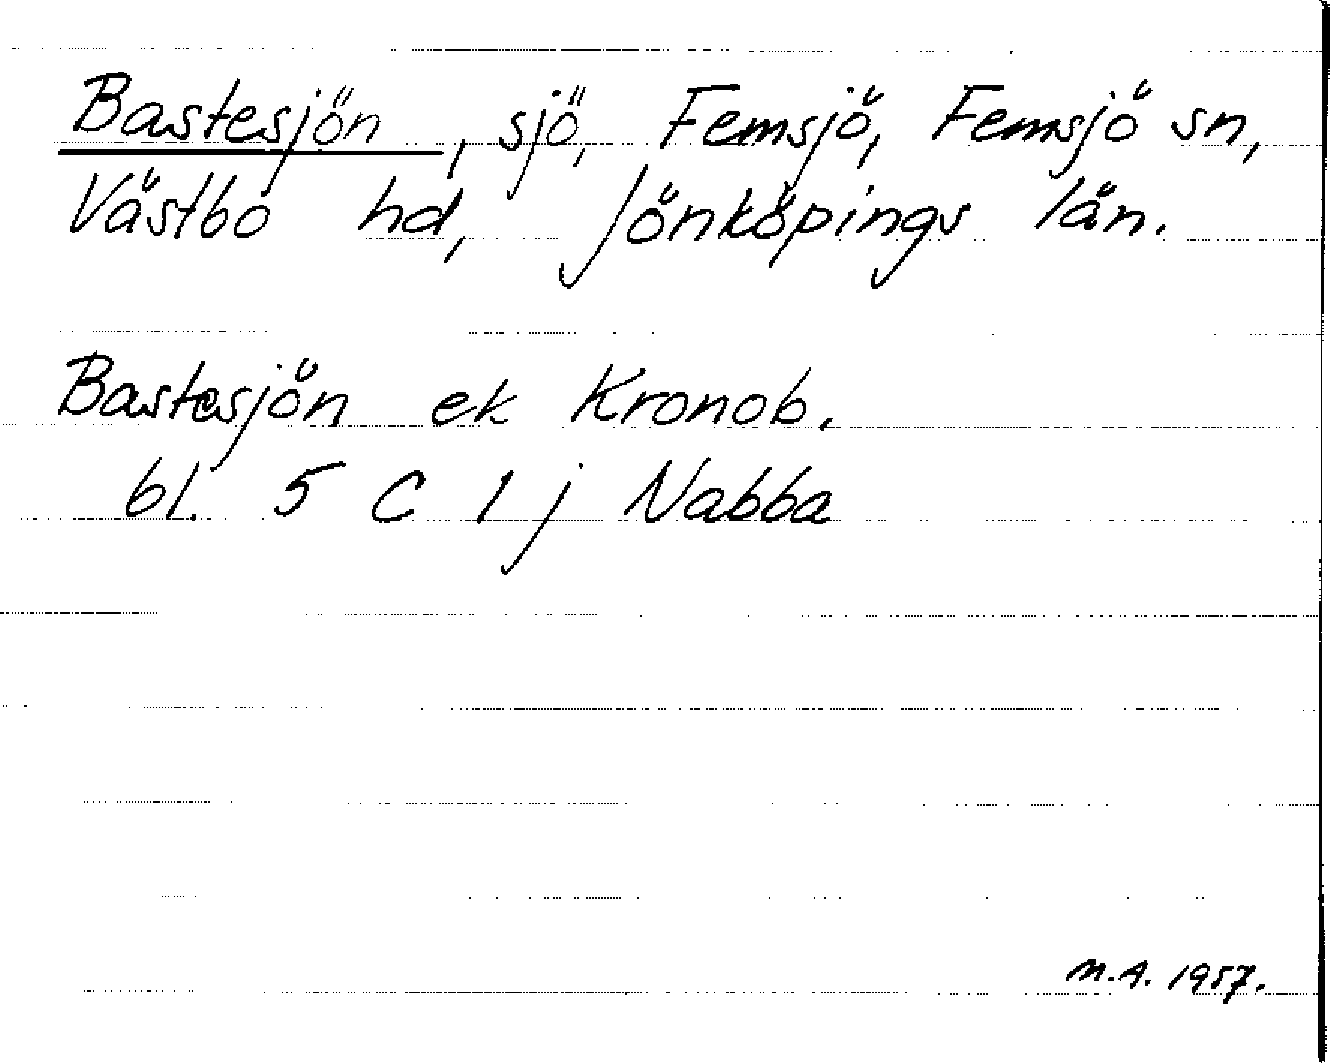 Bastesjön, sjö, Femsjö, Femsjö sn,
Västbo hd, Jönköpings län.
Bastesjön ek Kronob.
bl. 5 C 1 j Nabba
M.A. 1957.